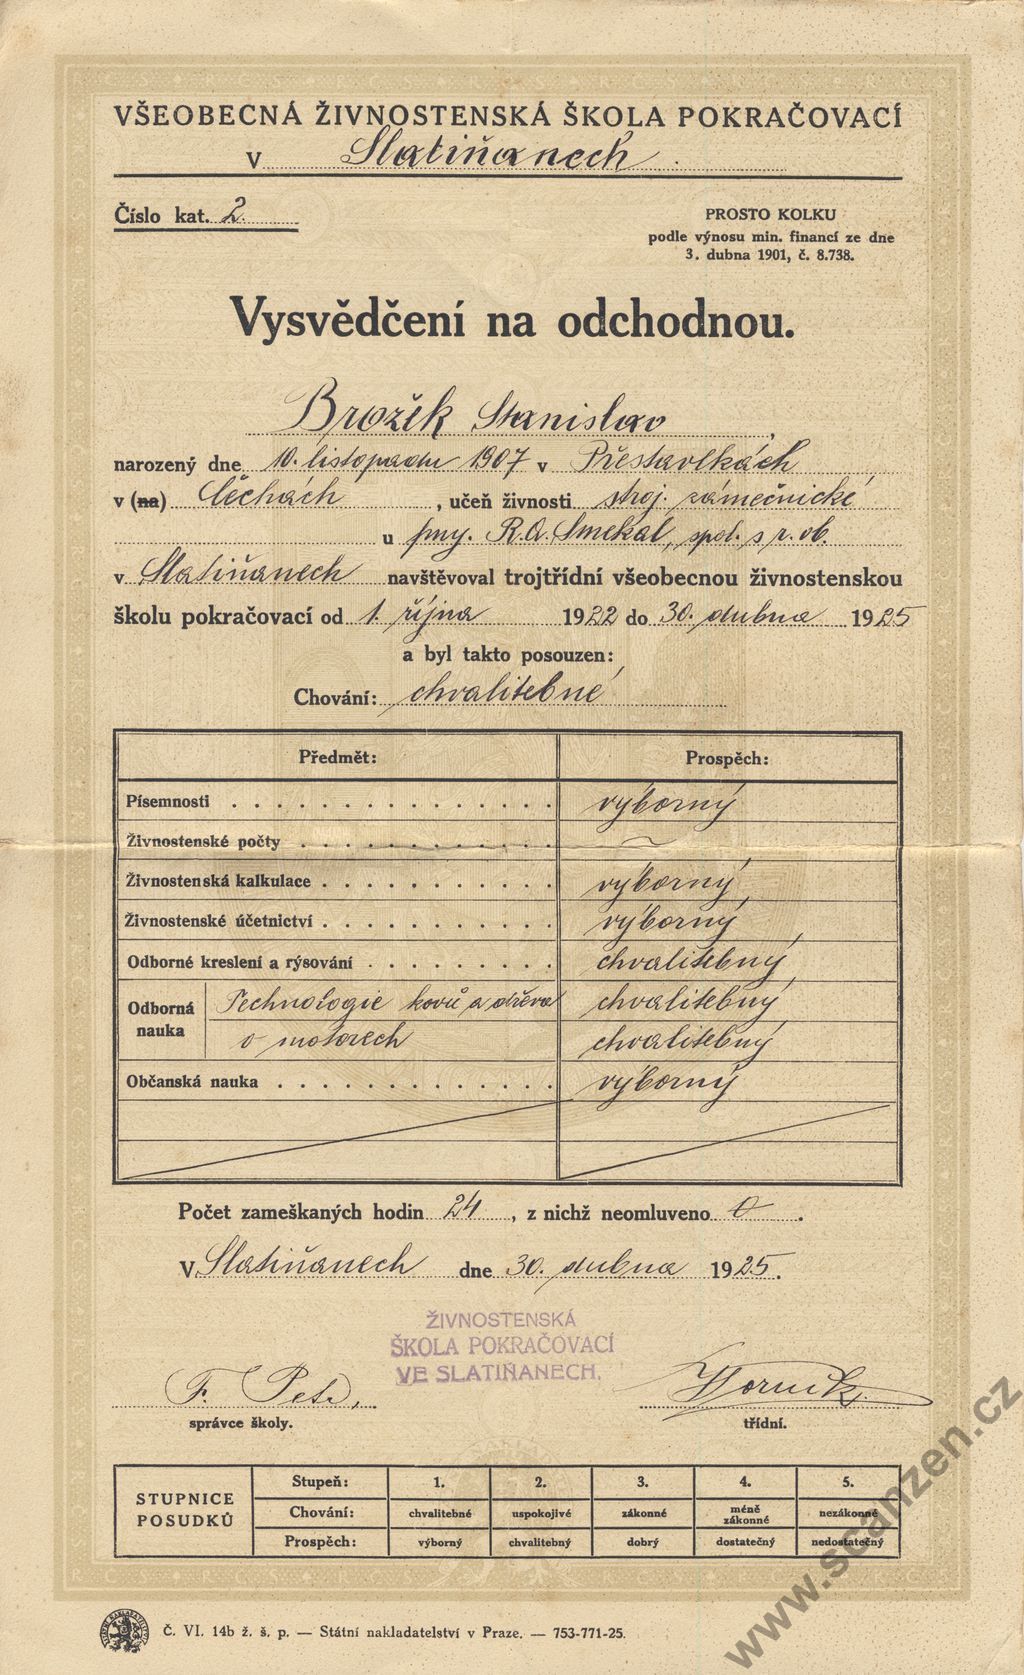 VŠEOBECNÁ ŽIVNOSTENSKÁ ŠKOLA POKRAČOVACÍ
V Slatiňanech.
Číslo kat. 2.
PROSTO KOLKU
podle výnosu min. financí ze dne
3. dubna 1901, č. 8.738.
Vysvědčení na odchodnou.
Brožek Stanislav,
narozený dne 10. listopadu 1907 v Přestavlkách
v (na) Čechách, učeň živnosti stroj. zámečnické
u fmy. R.A. Smekal, spol. s r. ob.
v Slatiňanech navštěvoval trojtřídní všeobecnou živnostenskou
školu pokračovací od 1. října 1922 do 30. dubna 1925
a byl takto posouzen:
Chování: chvalitebné
Předmět: Prospěch:
Písemnosti výborný
Živnostenské počty ~
Živnostenská kalkulace výborný
Živnostenské účetnictví výborný
Odborné kreslení a rýsování chvalitebný
Odborná nauka Technologie kovů a dřeva chvalitebný
o motorech chvalitebný
Občanská nauka výborný
Počet zameškaných hodin 24, z nichž neomluveno 0.
V Slatiňanech dne 30. dubna 1925.
ŽIVNOSTENSKÁ
ŠKOLA POKRAČOVACÍ
VE SLATIŇANECH.
F. Petr,
správce školy.
třídní.
STUPNICE POSUDKŮ
Stupeň: 1. 2. 3. 4. 5.
Chování: chvalitebné uspokojivé zákonné méně zákonné nezákonné
Prospěch: výborný chvalitebný dobrý dostatečný nedostatečný
Č. VI. 14b ž. š. p. — Státní nakladatelství v Praze. — 753-771-25.
www.scanzen.cz